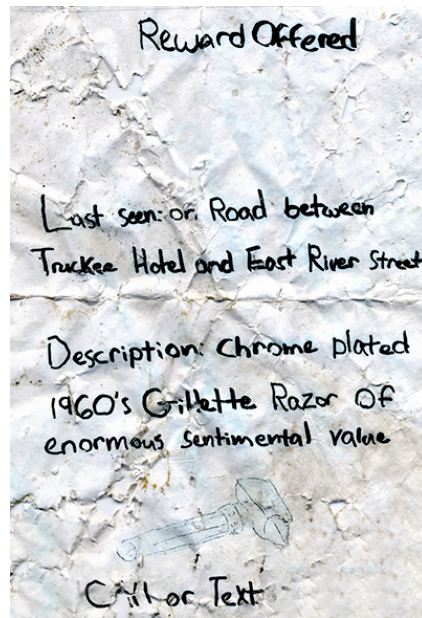 Reward Offered
Last seen: on Road between
Truckee Hotel and East River Street
Description: Chrome plated
1960's Gillette Razor Of
enormous sentimental value
Call or Text